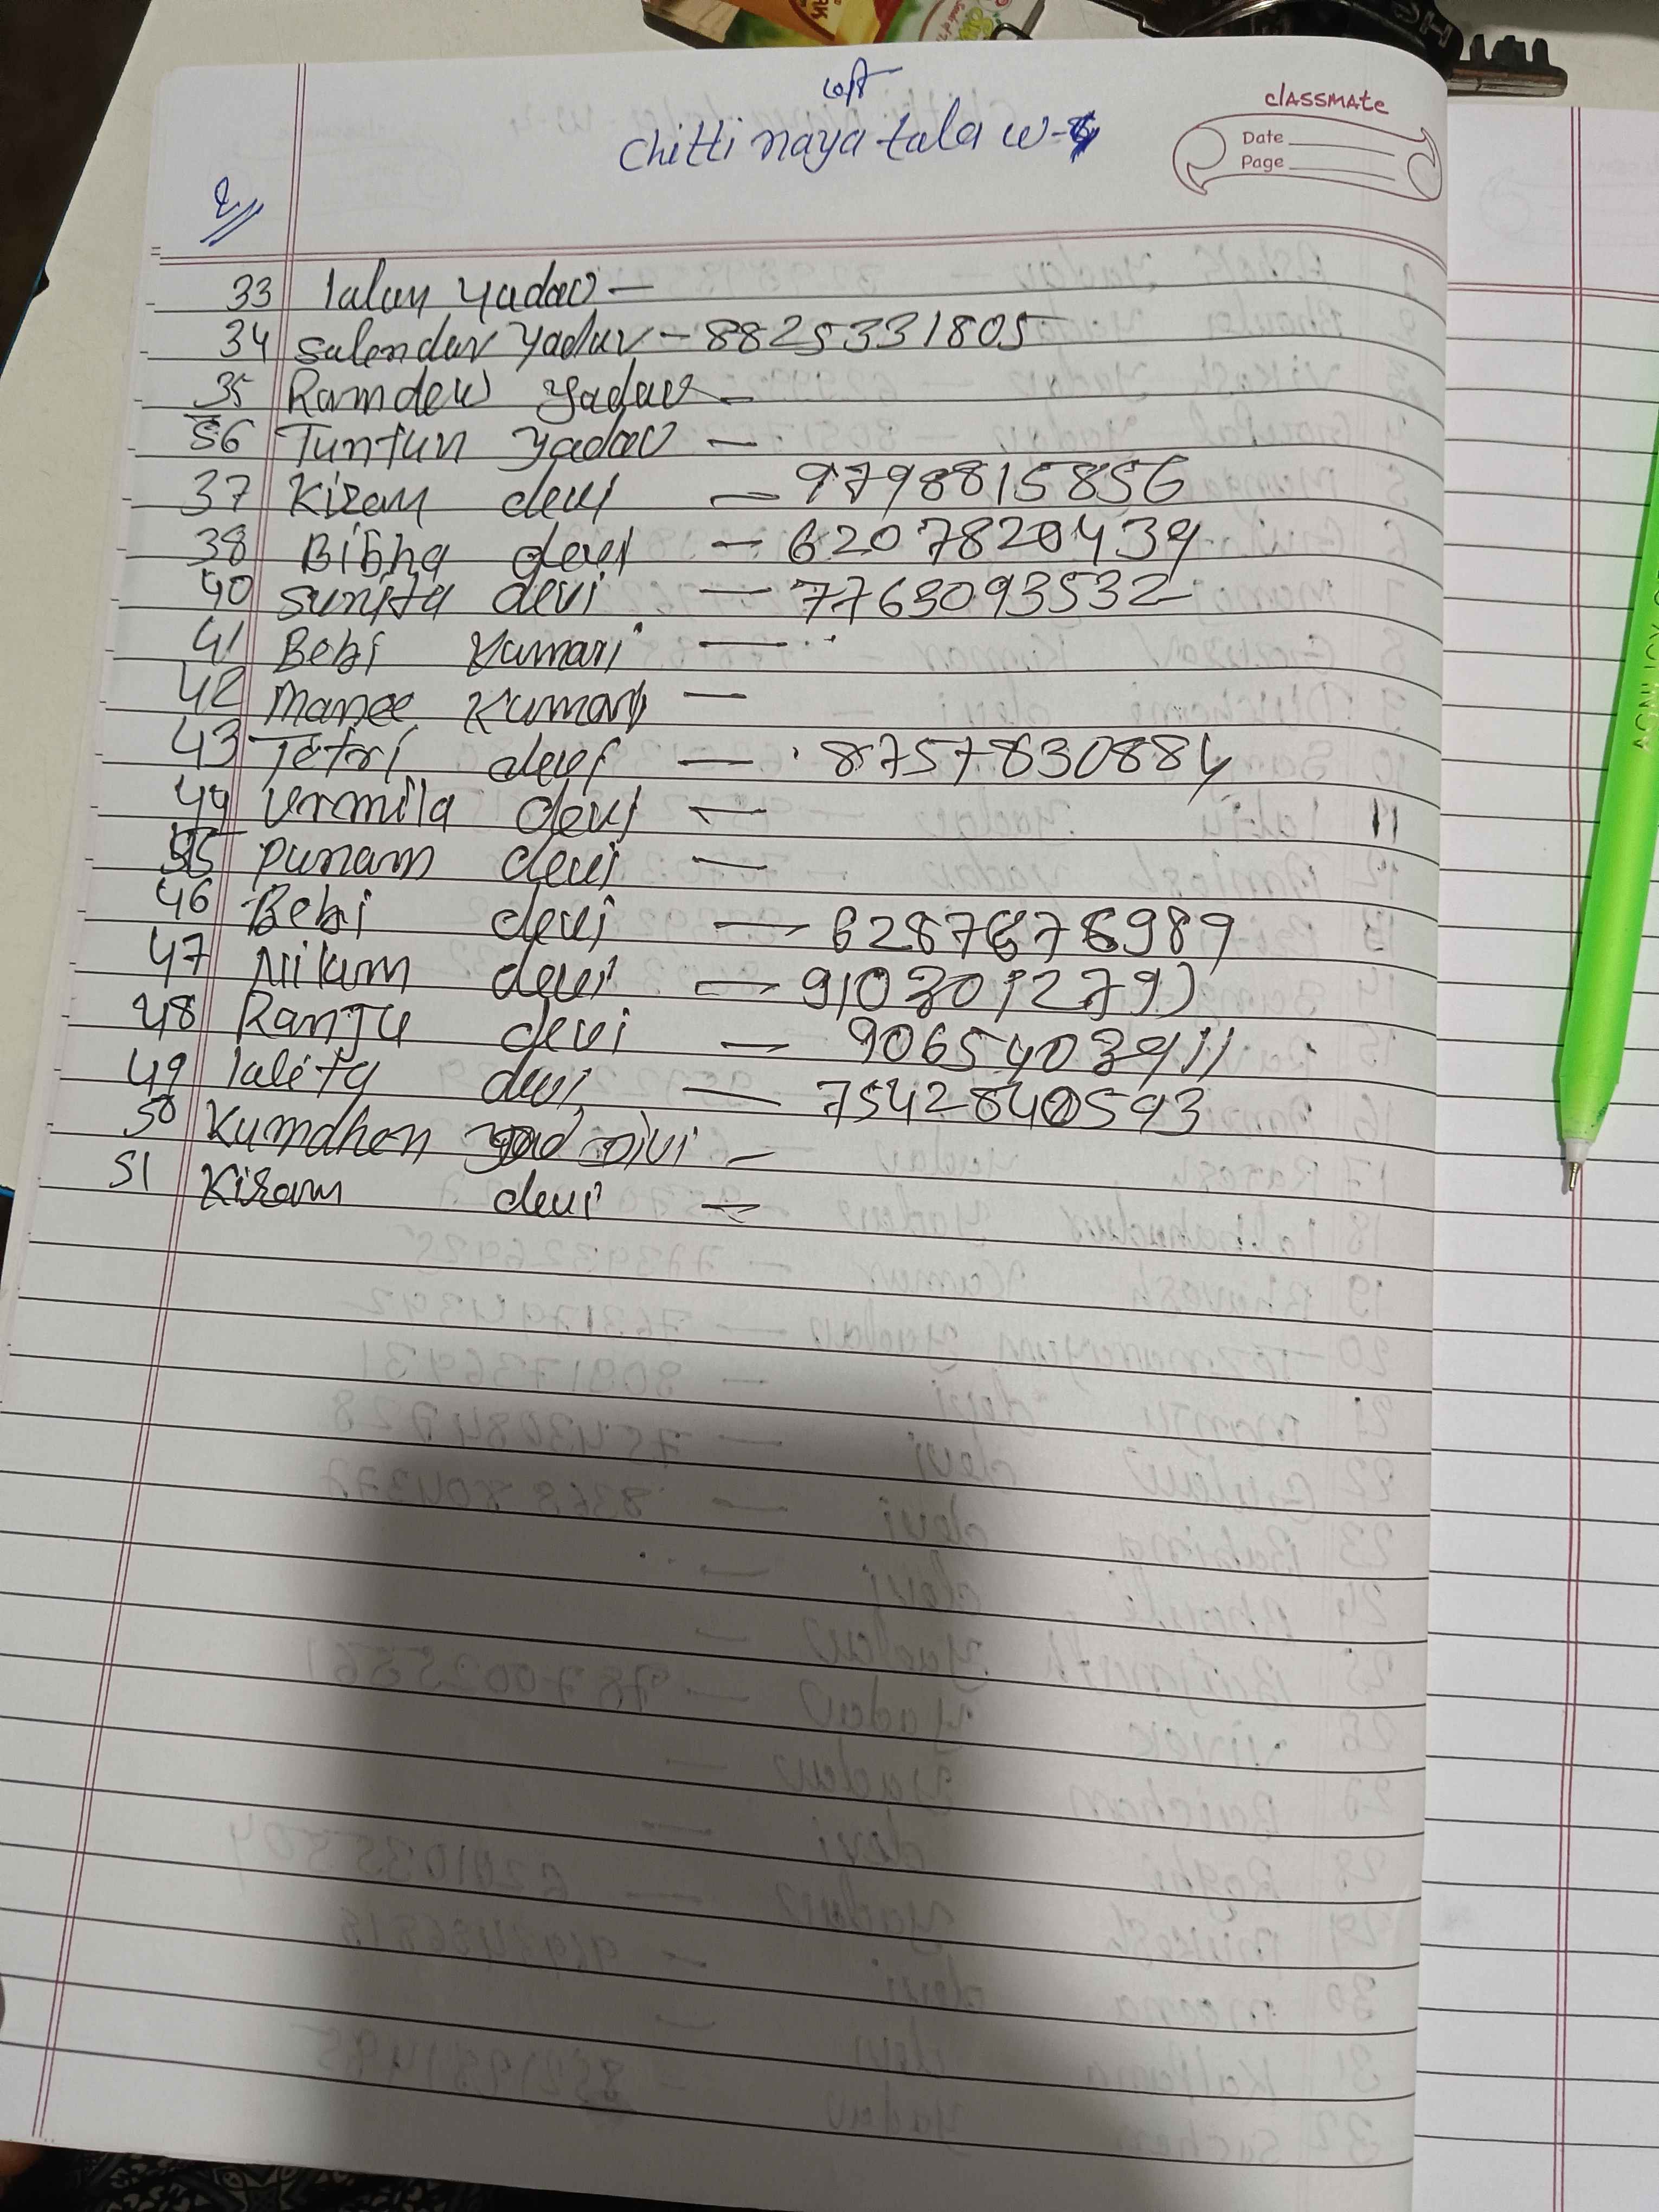 Chitti naya tala w-
classmate
Date
Page
2
33 lalan yadav -
34 Salendar yadav - 8825331805
35 Ramdew yadav -
36 Tuntun yadav -
37 Kiran devi - 9798815856
38 Bibha devi - 6207820439
40 Sunita devi - 7763093532
41 Bebi Kumari -
42 Manee Kumari -
43 Tetri devi - 8757830884
44 Urmila devi -
45 Punam devi -
46 Bebi devi - 6287676989
47 Nilam devi -
48 Ranju devi - 9065403911
49 lalita devi - 7542840593
50 Kumdhen
51 Kiram devi -